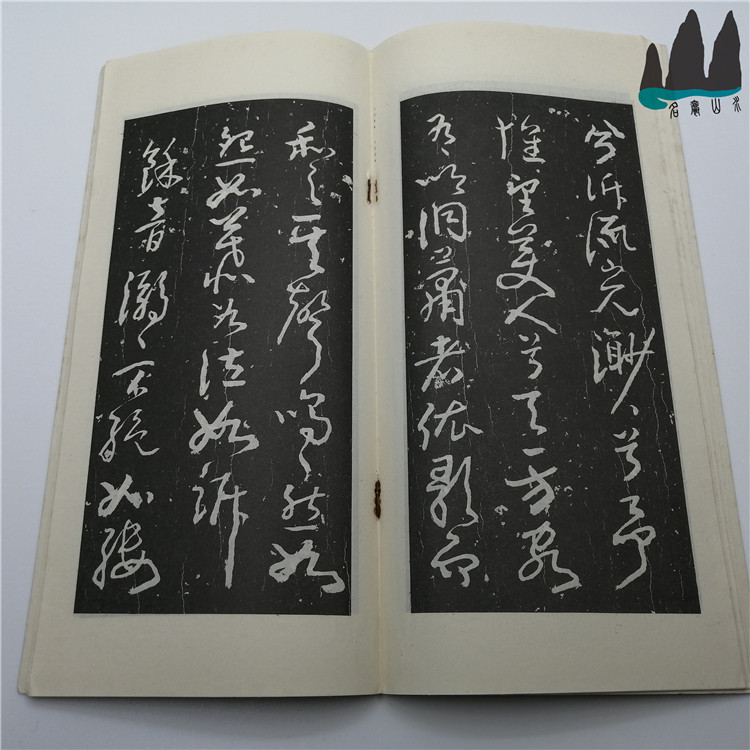 兮泝流光渺〻兮予
懷望美人兮天一方客
有吹洞簫者依歌而
和之其聲嗚〻然如
怨如慕如泣如訴
餘音溺〻不絕如縷